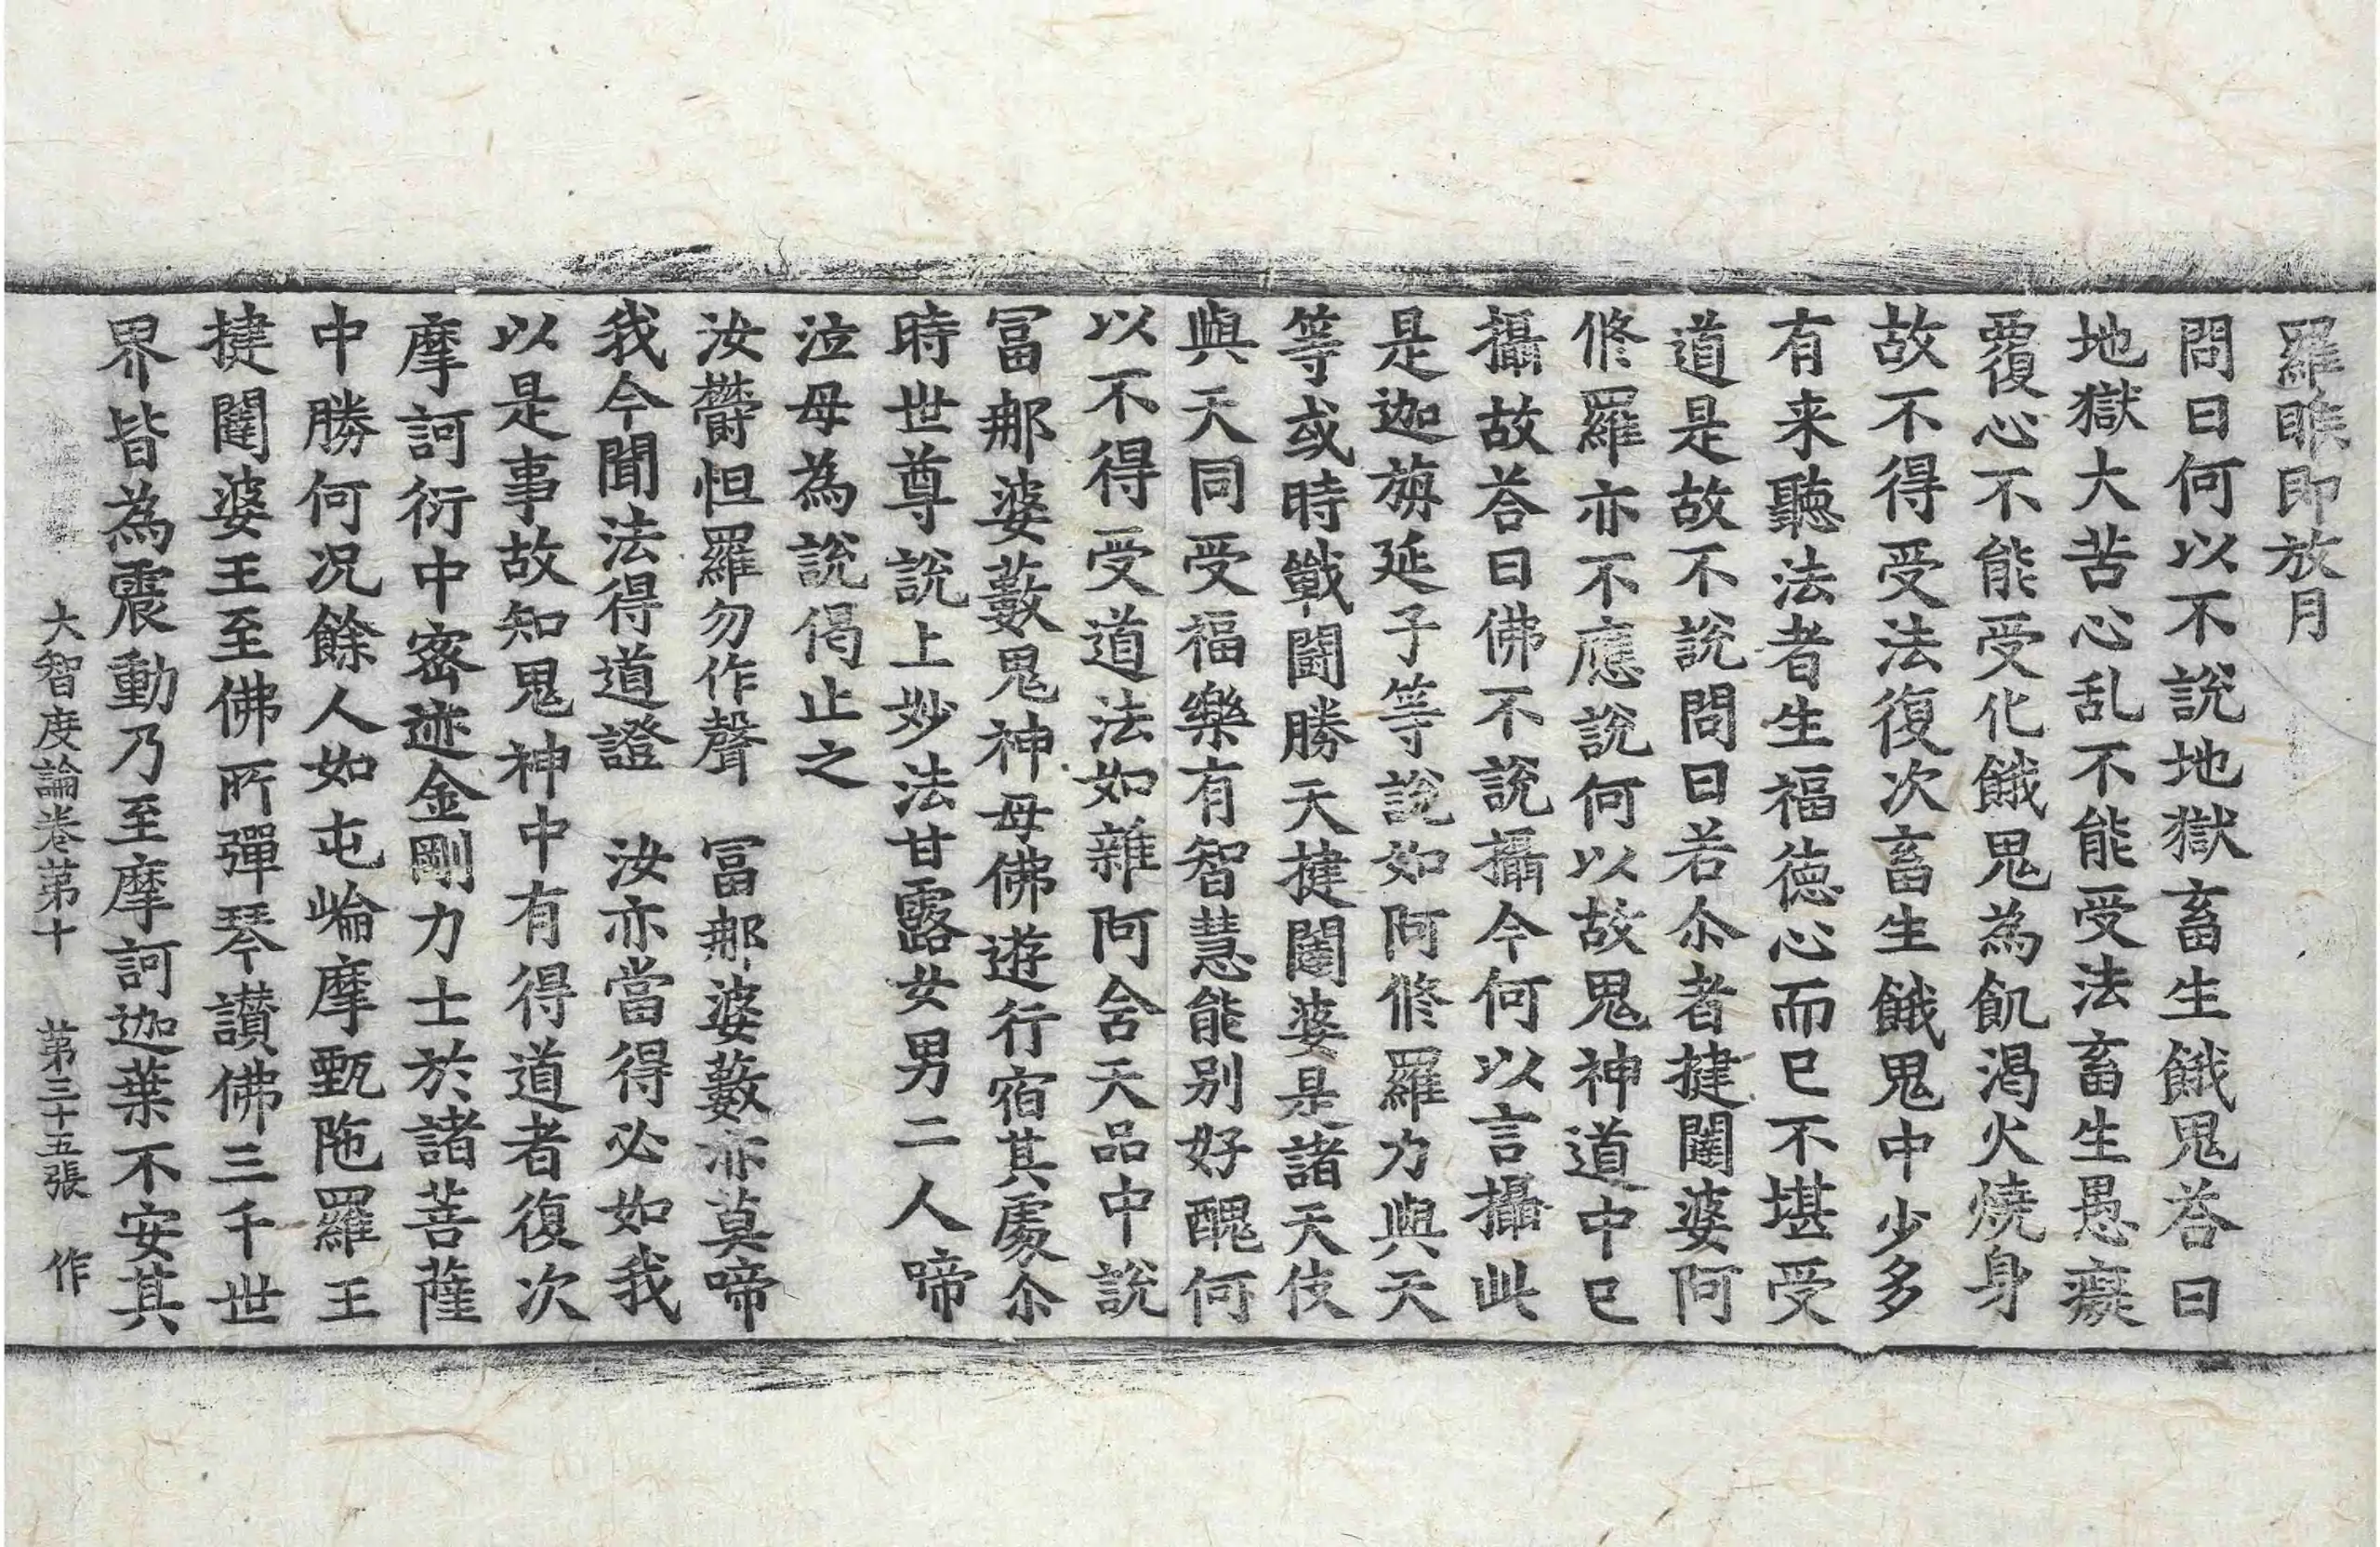 羅睺即放月
問曰何以不説地獄畜生餓鬼荅曰
地獄大苦心乱不能受法畜生愚癡
覆心不能受化餓鬼為飢渴火燒身
故不得受法復次畜生餓鬼中少多
有来聽法者生福徳心而已不堪受
道是故不説問曰若尒者揵闥婆阿
修羅亦不應説何以故鬼神道中已
攝故荅曰佛不説攝今何以言攝此
是迦旃延子等説如阿修羅力與天
等或時戰鬪勝天揵闥婆是諸天伎
與天同受福樂有智慧能别好醜何
以不得受道法如雜阿含天品中説
冨那婆藪鬼神母佛遊行宿其處尒
時世尊説上妙法甘露女男二人啼
泣母為説偈止之
汝欝怛羅勿作聲　冨那婆藪亦莫啼
我今聞法得道證　汝亦當得必如我
以是事故知鬼神中有得道者復次
摩訶衍中密迹金剛力士於諸菩薩
中勝何况餘人如屯崘摩甄陁羅王
揵闥婆王至佛所彈琴讃佛三千世
界皆為震動乃至摩訶迦葉不安其
大智度論卷第十　第三十五張　作